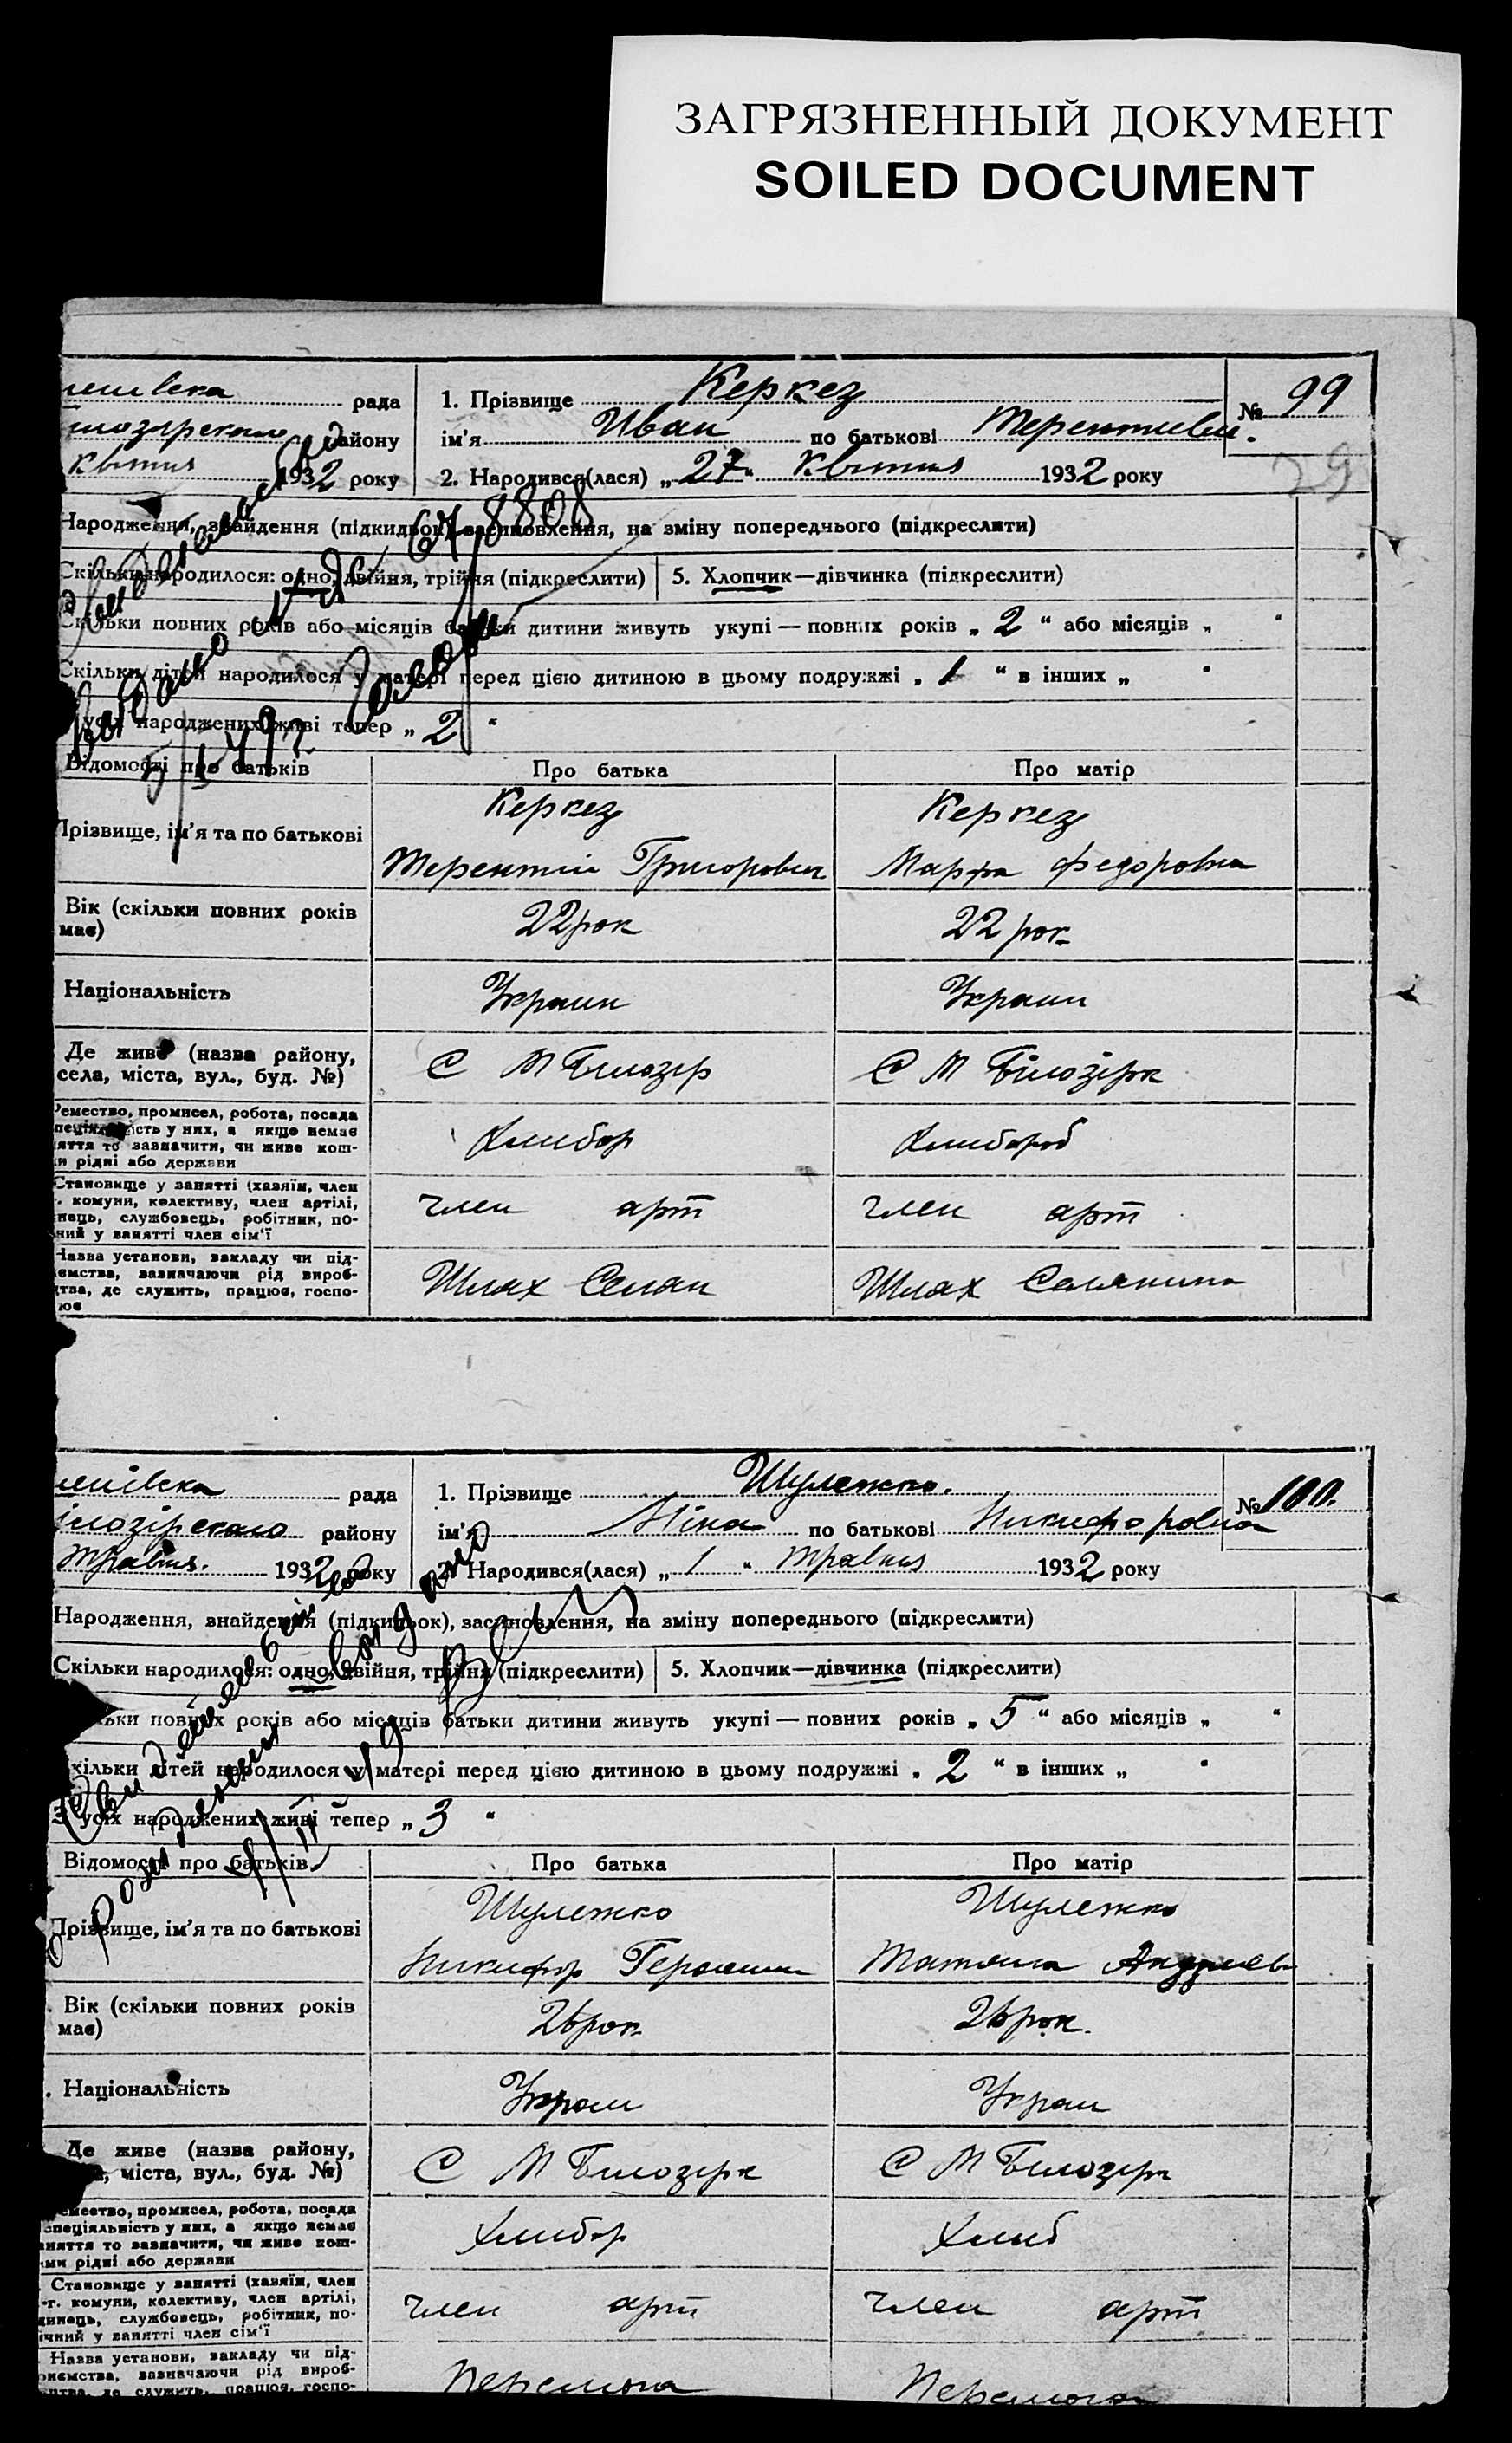 ЗАГРЯЗНЕННЫЙ ДОКУМЕНТ
SOILED DOCUMENT
рада
району
квітня 1932 року
1. Прізвище Керкез
№ 99
ім'я Иван по батькові
2. Народився(лася) „ 27 “ квітня 1932 року
29
Народження, знайдення (підкидьок), засиновлення, на зміну попереднього (підкреслити)
Скільки народилося: одно, двійня, трійня (підкреслити)
5. Хлопчик—дівчинка (підкреслити)
Скільки повних років або місяців батьки дитини живуть укупі — повних років „ 2 “ або місяців „ “
Скільки дітей народилося у матері перед цією дитиною в цьому подружжі „ 1 “ в інших „ “
усіх народжених живі тепер „ 2 “
Відомості про батьків
Про батька
Про матір
Прізвище, ім'я та по батькові
Керкез
Керкез
Терентий Григорович
Марфа Федоровна
Вік (скільки повних років
має)
22 рок
22 рок
Національність
Украин
Украин
Де живе (назва району,
села, міста, вул., буд. №)
С М Билозер
С М Білозірк
Ремество, промисел, робота, посада
ість у них, а якщо немає
яття то зазначити, чи живе кош-
и рідні або держави
Хлибор
Хлибороб
Становище у занятті (хазяїн, член
. комуни, колективу, член артілі,
нець, службовець, робітник, по-
ний у занятті член сім'ї
член арт
член арт
Назва установи, закладу чи під-
ємства, зазначаючи рід вироб-
тва, де служить, працює, госпо-
ює
Шлях Селян
Шлях Селянина
рада
району
травня. 1932 року
1. Прізвище Шулежко.
№ 100.
ім'я Ніна по батькові Никифоровна
2. Народився(лася) „ 1 “ травня 1932 року
Народження, знайдення (підкидьок), засиновлення, на зміну попереднього (підкреслити)
Скільки народилося: одно, двійня, трійня (підкреслити)
5. Хлопчик—дівчинка (підкреслити)
ьки повних років або місяців батьки дитини живуть укупі — повних років „ 5 “ або місяців „ “
кільки дітей народилося у матері перед цією дитиною в цьому подружжі „ 2 “ в інших „ “
З усіх народжених живі тепер „ 3 “
Відомості про батьків
Про батька
Про матір
Прізвище, ім'я та по батькові
Шулежко
Шулежко
Никифор
Татьяна Андриев
. Вік (скільки повних років
має)
26 рок
26 рок.
. Національність
Украи
Украи
Де живе (назва району,
, міста, вул., буд. №)
С М Билозерк
С М Билозерк
емество, промисел, робота, посада
спеціяльність у них, а якщо немає
аняття то зазначити, чи живе кош-
ами рідні або держави
Хлибор
Хлиб
Становище у занятті (хазяїн, член
-г. комуни, колективу, член артілі,
динець, службовець, робітник, по-
ічний у занятті член сім'ї
член арт
член арт
Назва установи, закладу чи під-
риємства, зазначаючи рід вироб-
цтва, де служить, працює, госпо-
Перемога
Перемога